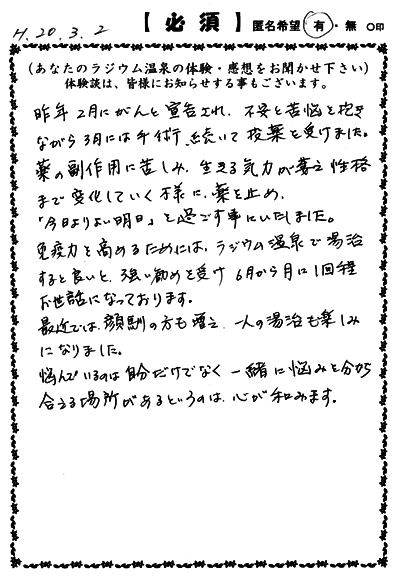 H.20.3.2 【必須】 匿名希望 有・無 ○印
(あなたのラジウム温泉の体験・感想をお聞かせ下さい)
体験談は、皆様にお知らせする事もございます。
昨年2月にがんと宣告され、不安と苦悩を抱き
ながら3月には手術、続いて投薬を受けました。
薬の副作用に苦しみ、生きる気力が萎え性格
まで変化していく様に、薬を止め、
「今日よりよい明日」を過ごす事にいたしました。
免疫力を高めるためには、ラジウム温泉で湯治
すると良いと、強い勧めを受け6月から月に1回程
お世話になっております。
最近では、顔馴の方も増え、一人の湯治も楽しみ
になりました。
悩んでいるのは自分だけでなく一緒に悩みを分かち
合える場所があるというのは、心が和みます。